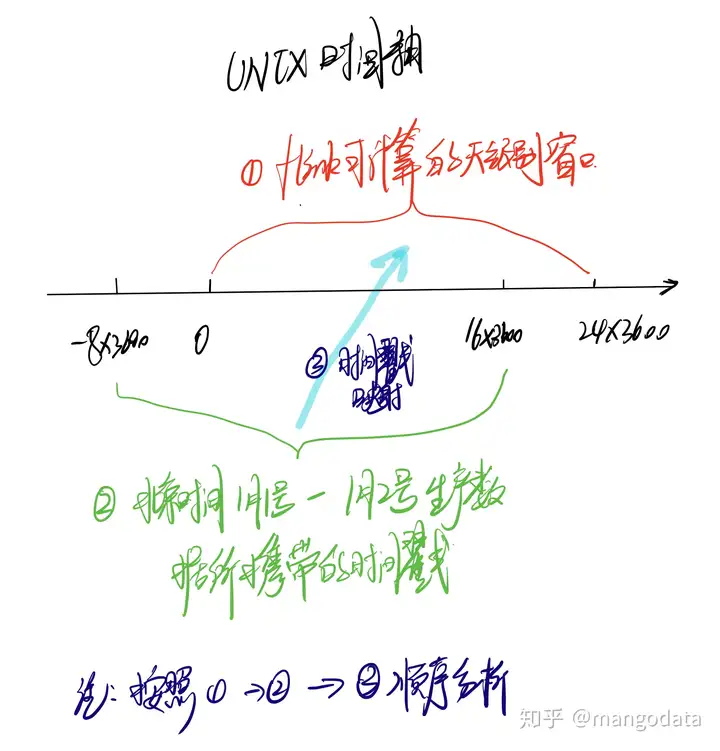 UNIX时间轴
① flink可计算的天级别窗口
-8×3600 0 16×3600 24×3600
③ 时间戳
映射
② 北京时间1月1号-1月2号生产数
据所携带的时间戳
注:按照①→②→③顺序分析
知乎 @mangodata